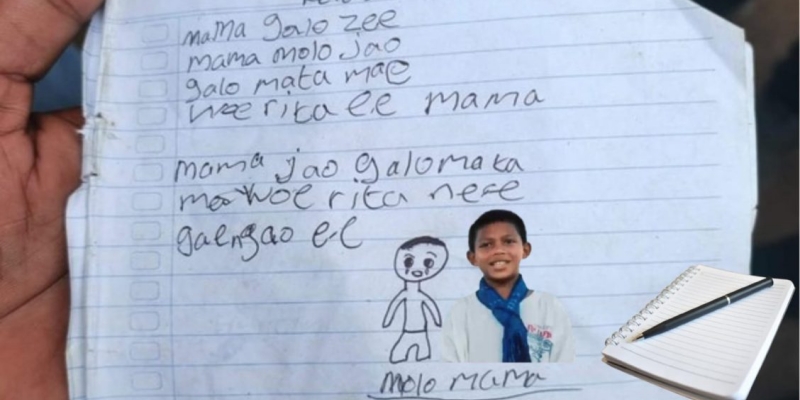 mama galo zee
mama molo jao
galo mata mae
woe rita ee mama
mama jao galo mata
mae woe rita nee
gae ngao ee
molo mama